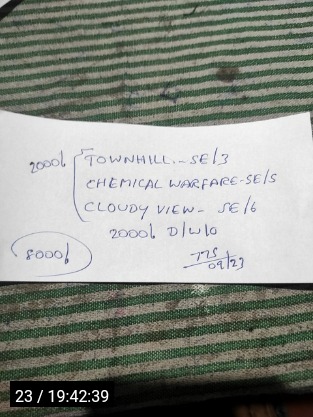 2000/ TOWNHILL.-SE/3
CHEMICAL WARFARE-SE/5
CLOUDY VIEW- SE/6
2000/ D/W/O
8000/
09/23
23 / 19:42:39